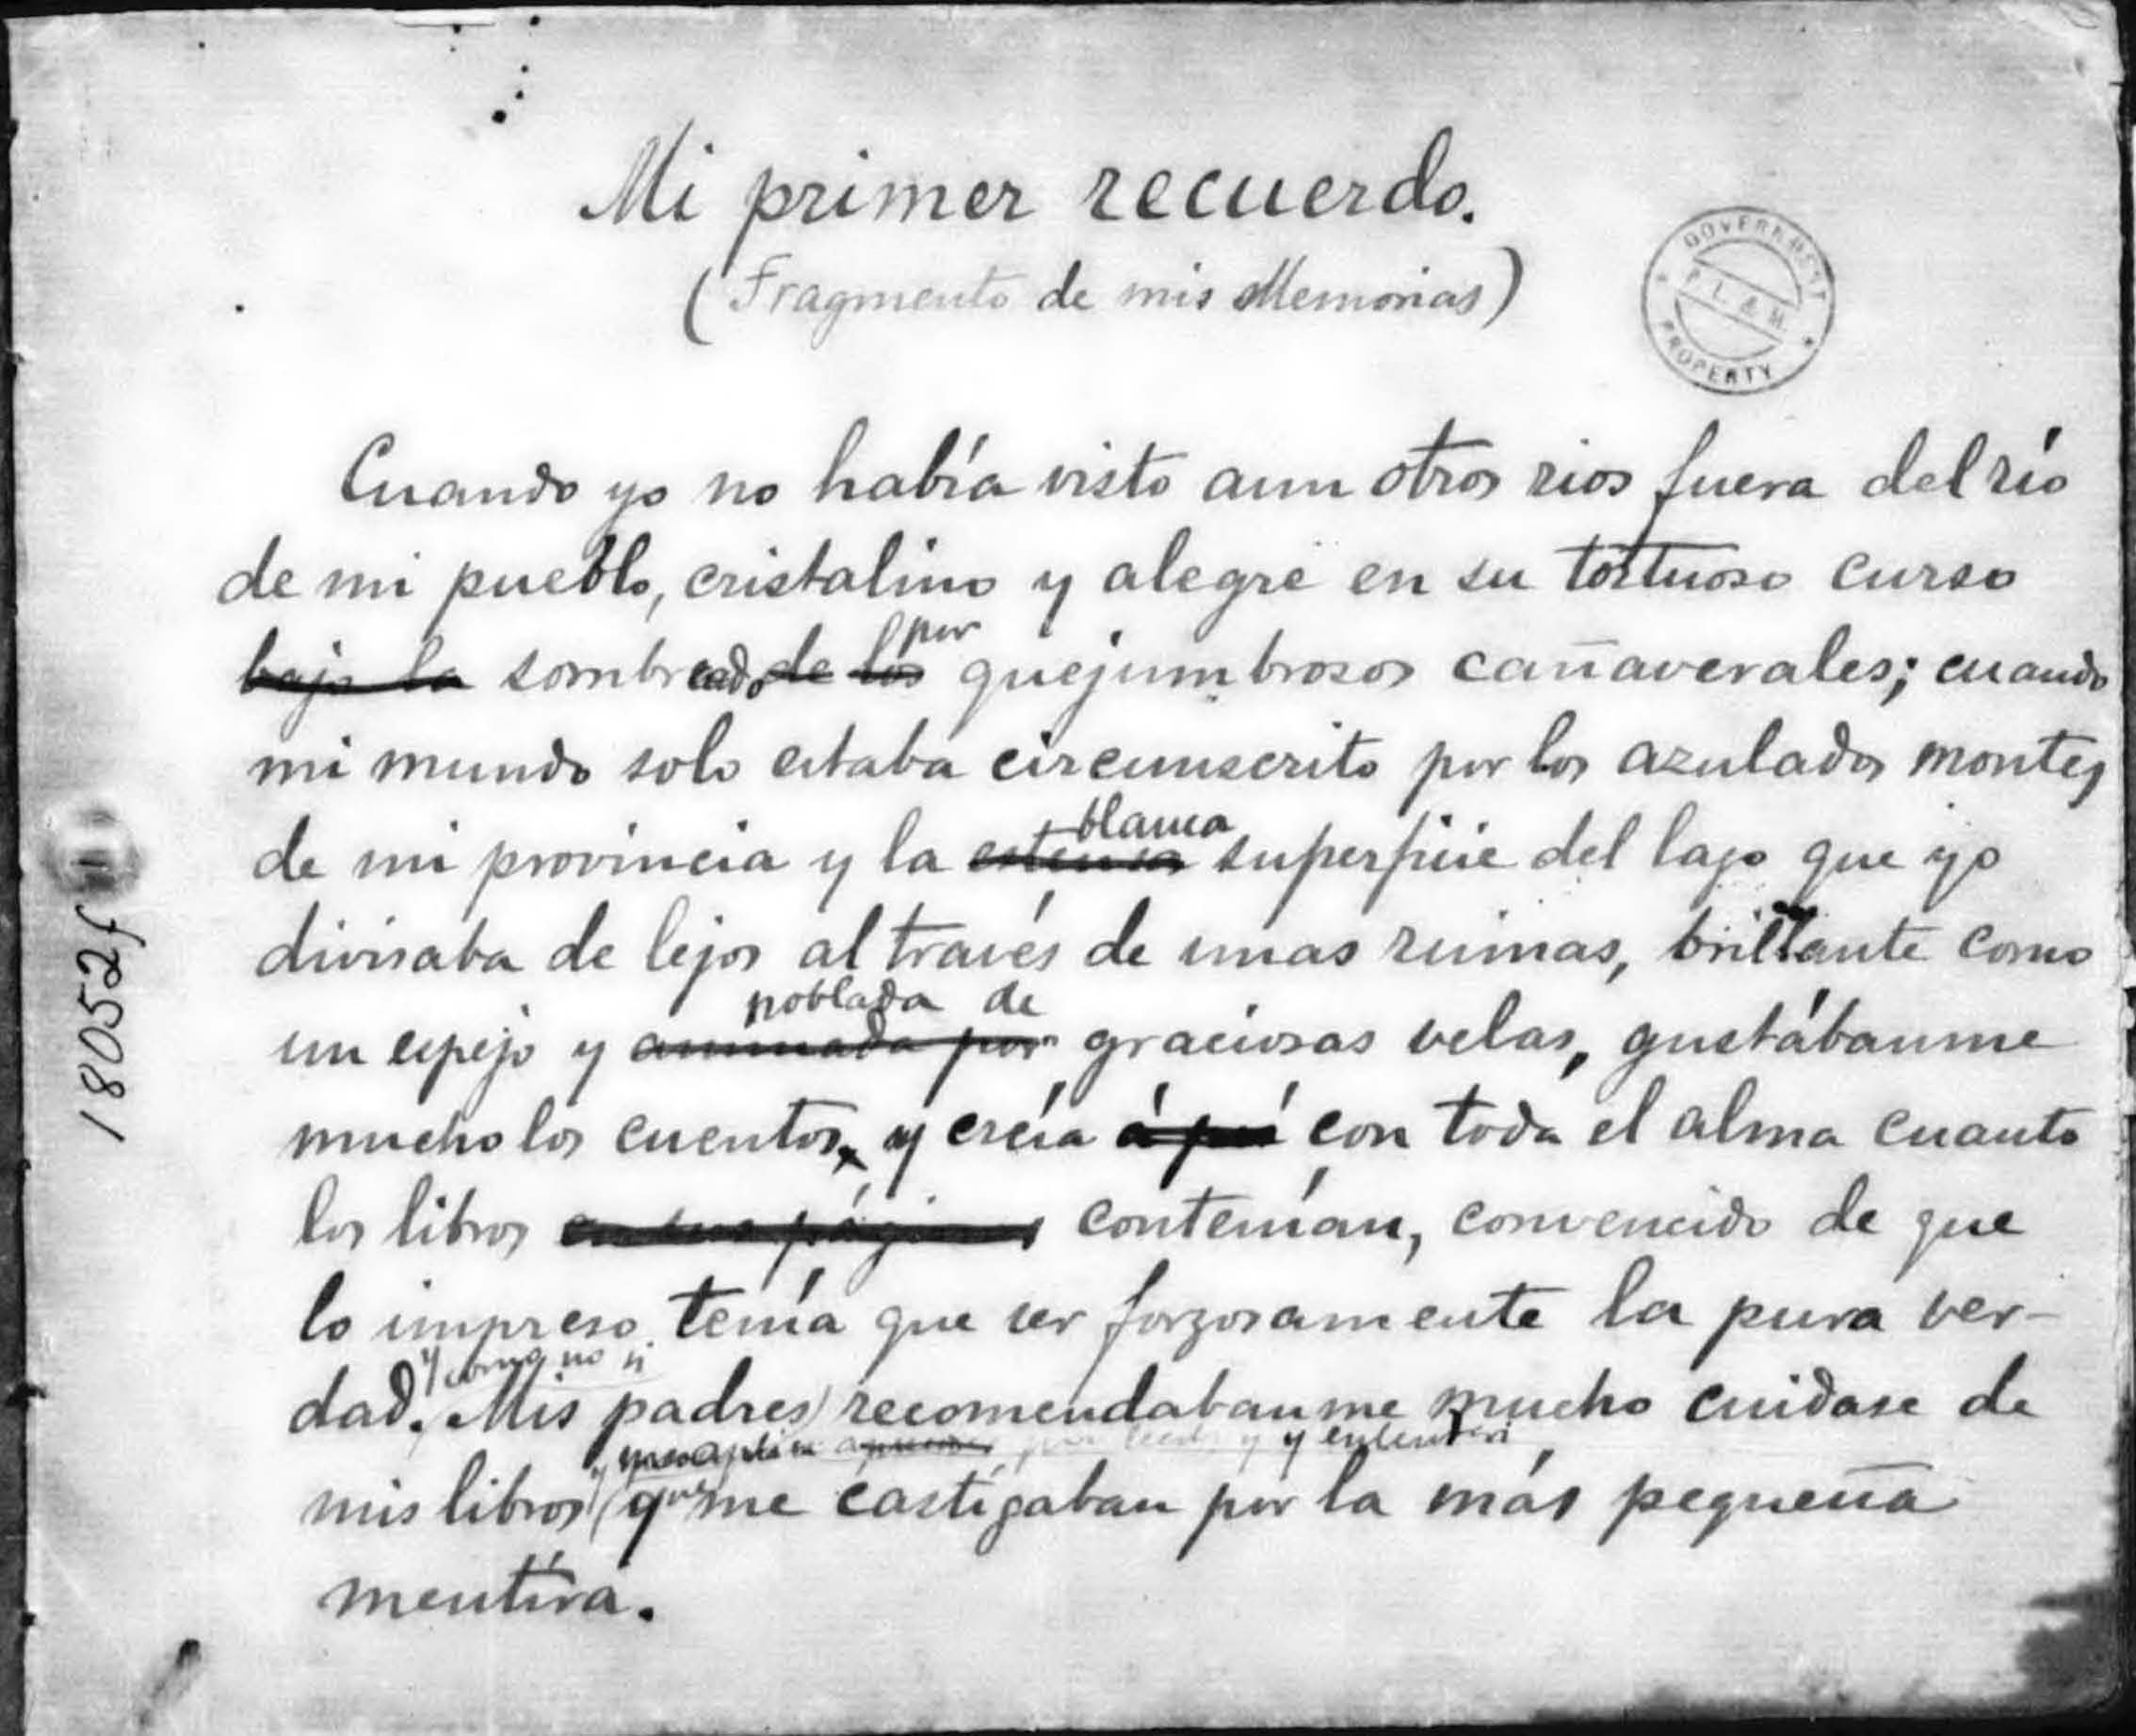 Mi primer recuerdo.
(Fragmento de mis Memorias)
GOVERNMENT
P. L. & M.
PROPERTY
Cuando yo no había visto aun otros rios fuera del río
de mi pueblo, cristalino y alegre en su tortuoso curso
por
bajo la sombreado de los quejumbrosos cañaverales; cuando
mi mundo solo estaba circunscrito por los azulados montes
blanca
de mi provincia y la estensa superficie del lago que yo
divisaba de lejos al través de unas ruinas, brillante como
poblada de
un espejo y animada por graciosas velas, gustábanme
mucho los cuentos, y creía á pié con toda el alma cuanto
los libros en sus páginas contenían, convencido de que
lo impreso tenía que ser forzosamente la pura ver-
y como no si
dad. Mis padres recomendabanme mucho cuidase de
y y entender
mis libros que me castigaban por la más pequeña
mentira.
18052f